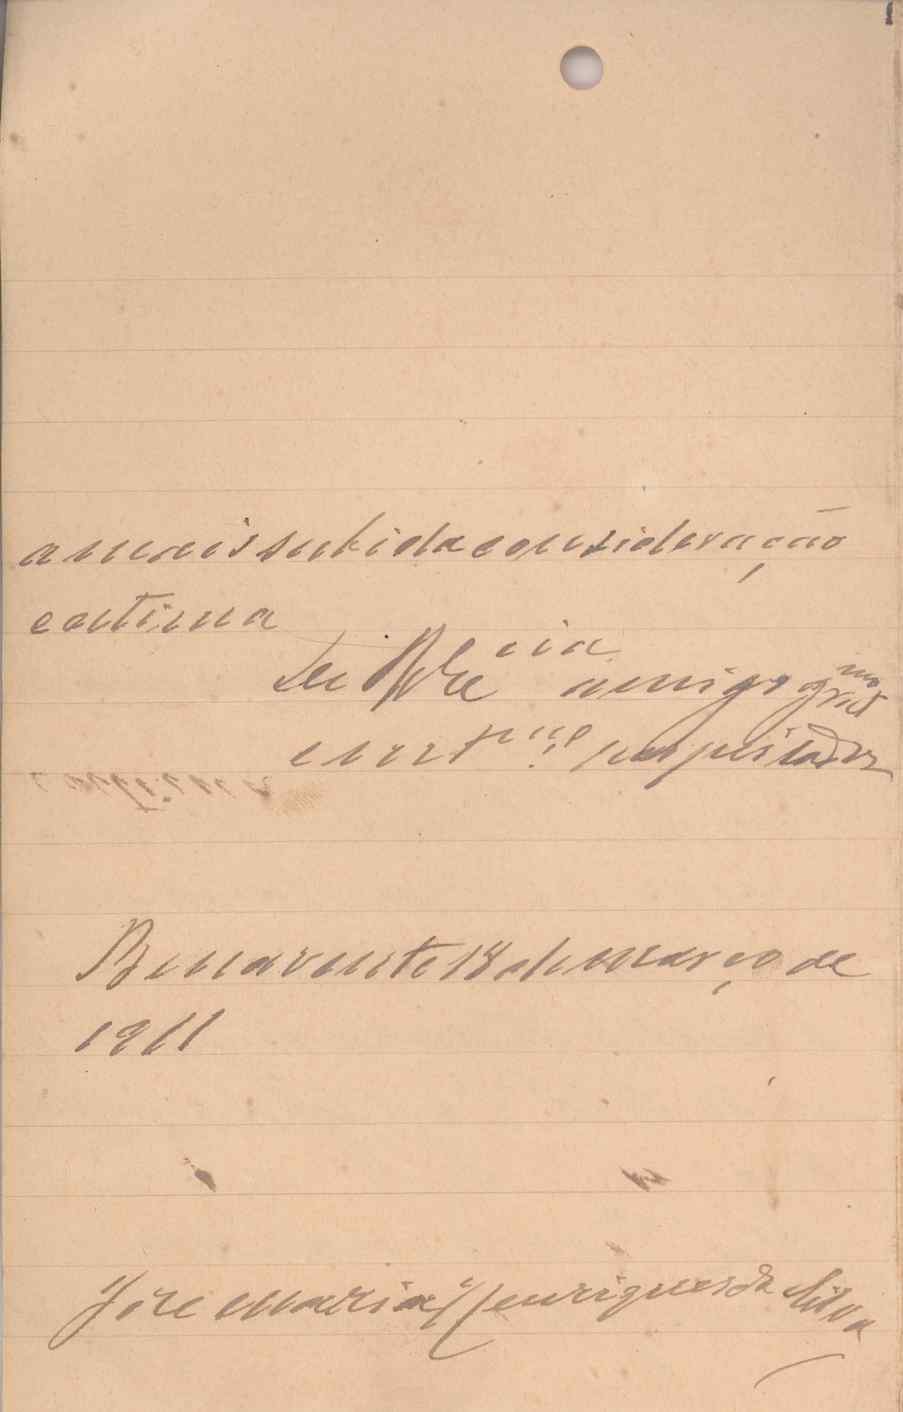 a mais subida consideração
e estima
De V. Ex.cia amigo grat.mo
e m.to respeitador
Benavente 18 de março de
1911
José Maria Henriques da Silva